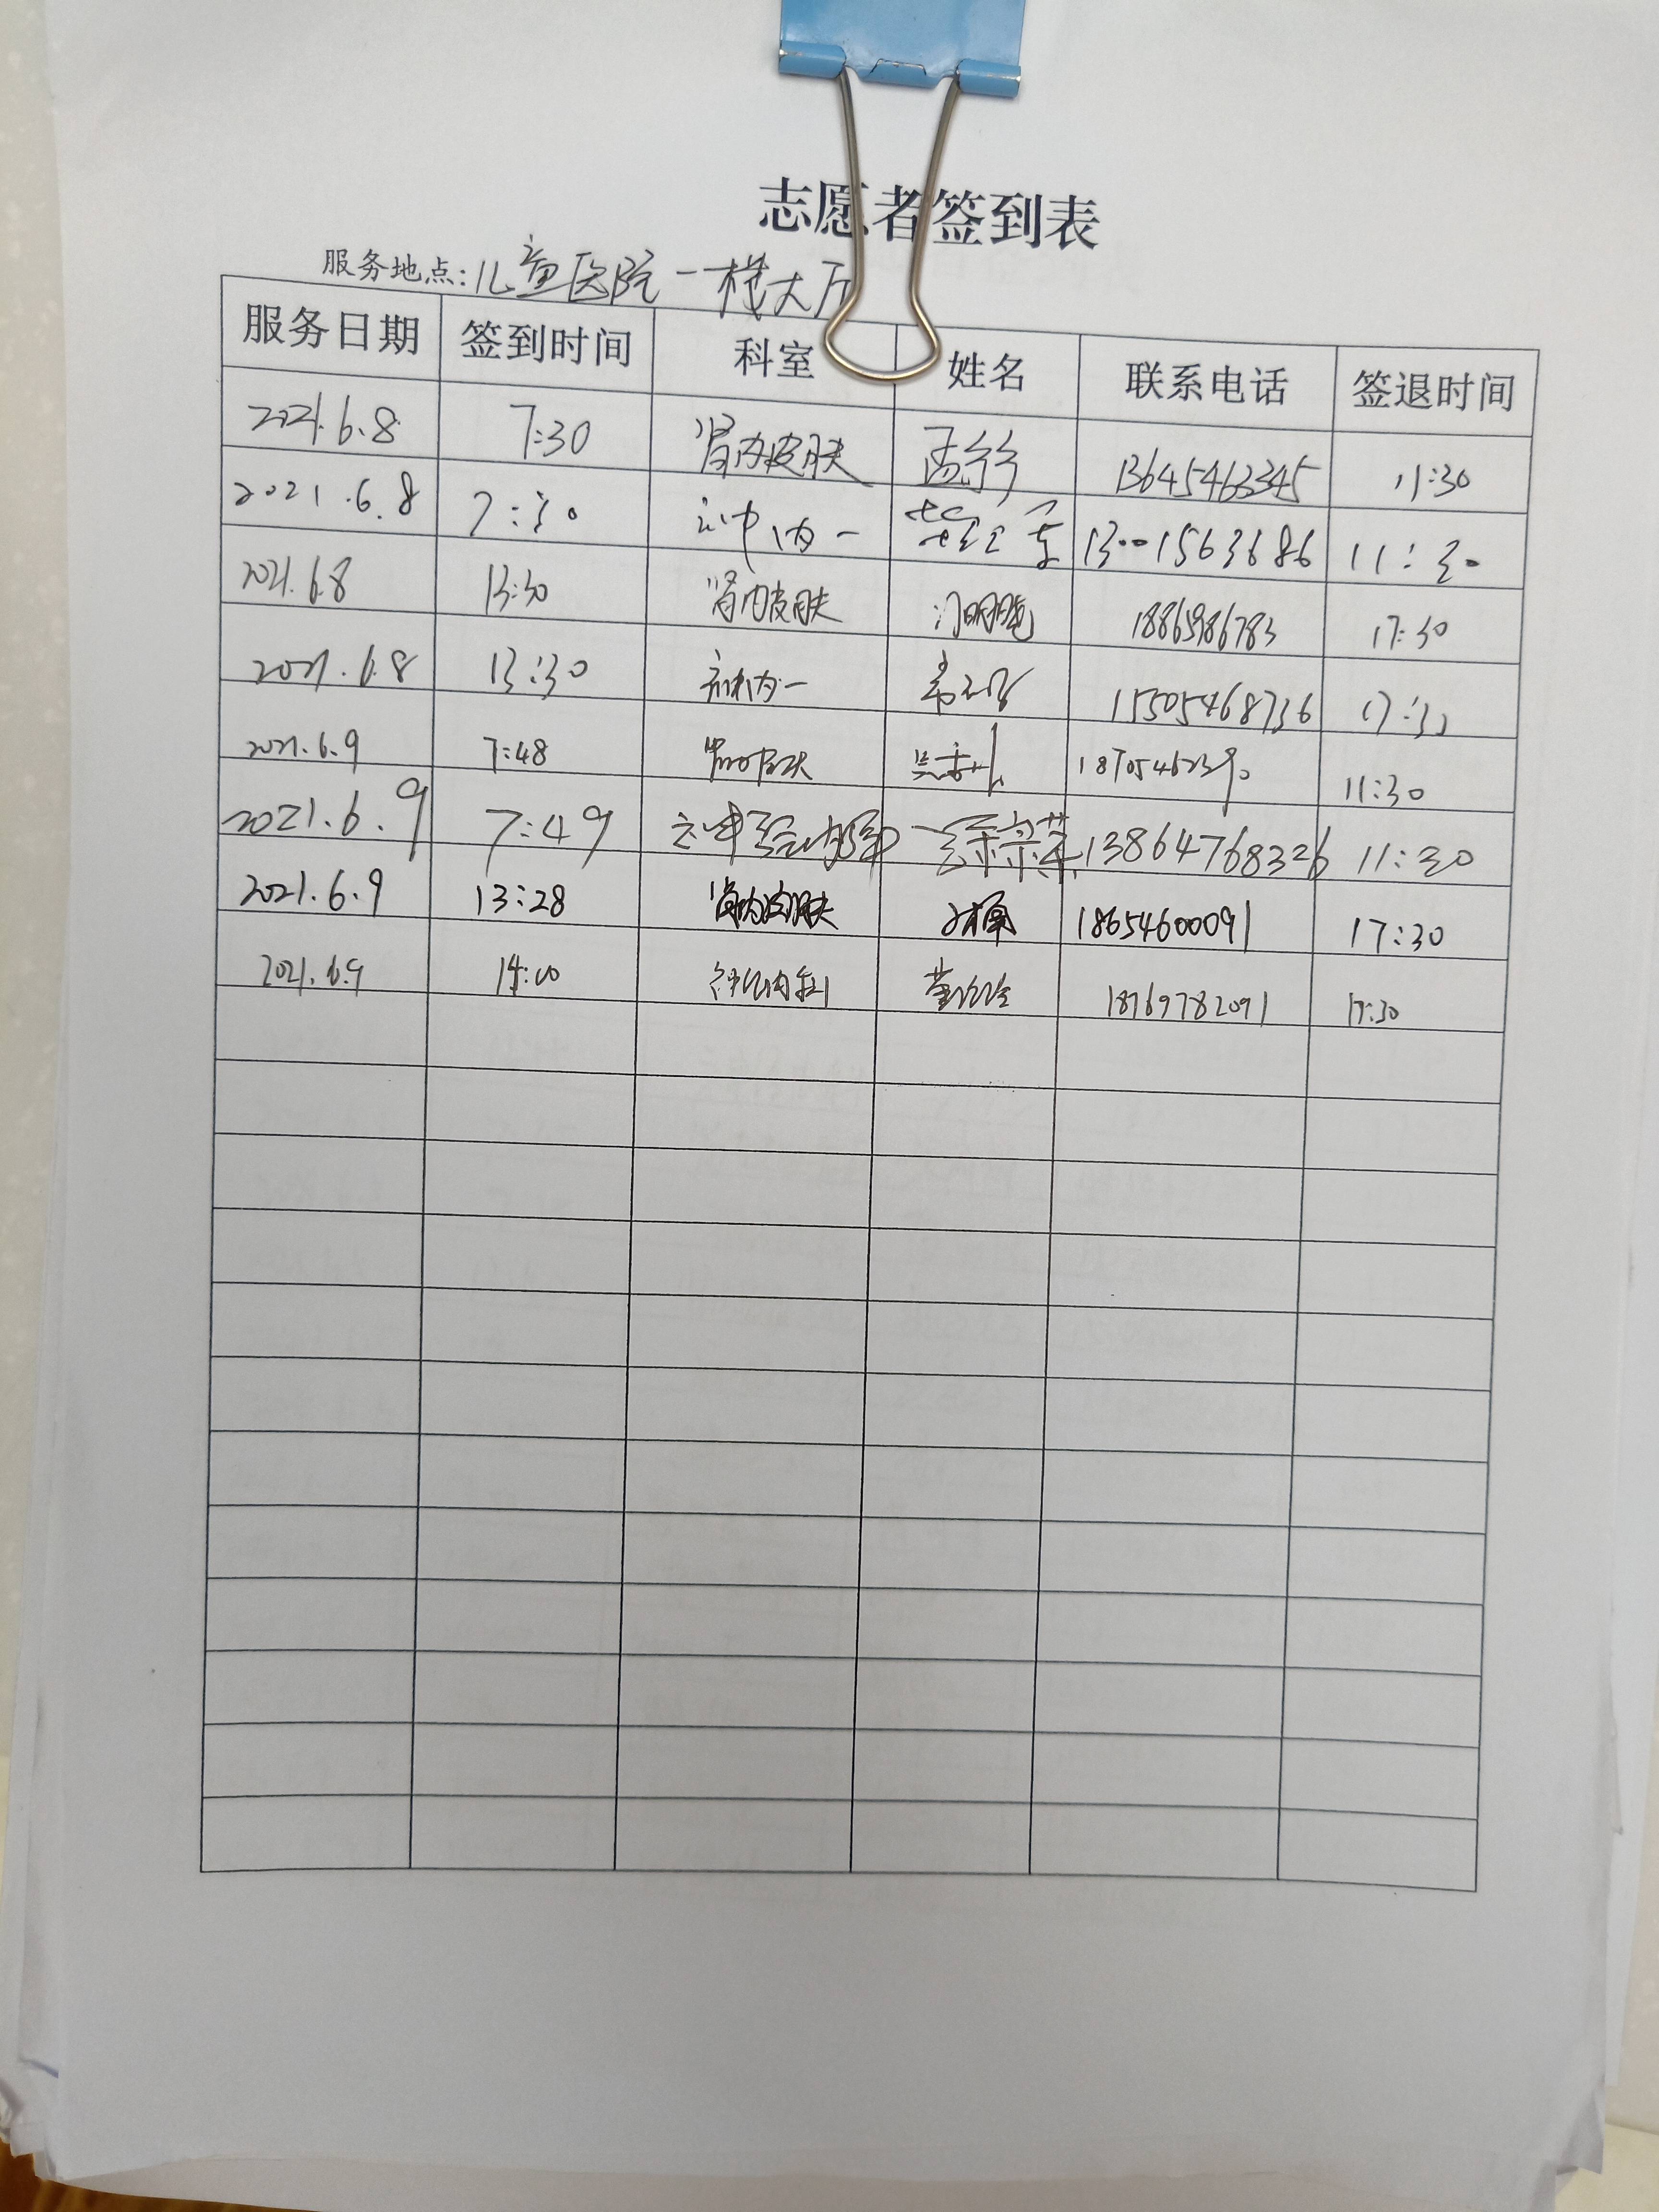 志愿者签到表
服务地点:儿童医院一楼大厅
服务日期 签到时间 科室 姓名 联系电话 签退时间
2021.6.8 7:30 肾内皮肤 孟 13645463345 11:30
2021.6.8 7:30 神内一 13001563686 11:30
2021.6.8 13:30 肾内皮肤 18865986783 17:30
2021.6.8 13:30 神内一 15505468736 17:30
2021.6.9 7:48 肾内皮肤 11:30
2021.6.9 7:49 神经内科一 徐宗荣 13864768326 11:30
2021.6.9 13:28 肾内皮肤 18654600091 17:30
2021.6.9 14:00 神经内科 董 18769782091 17:30